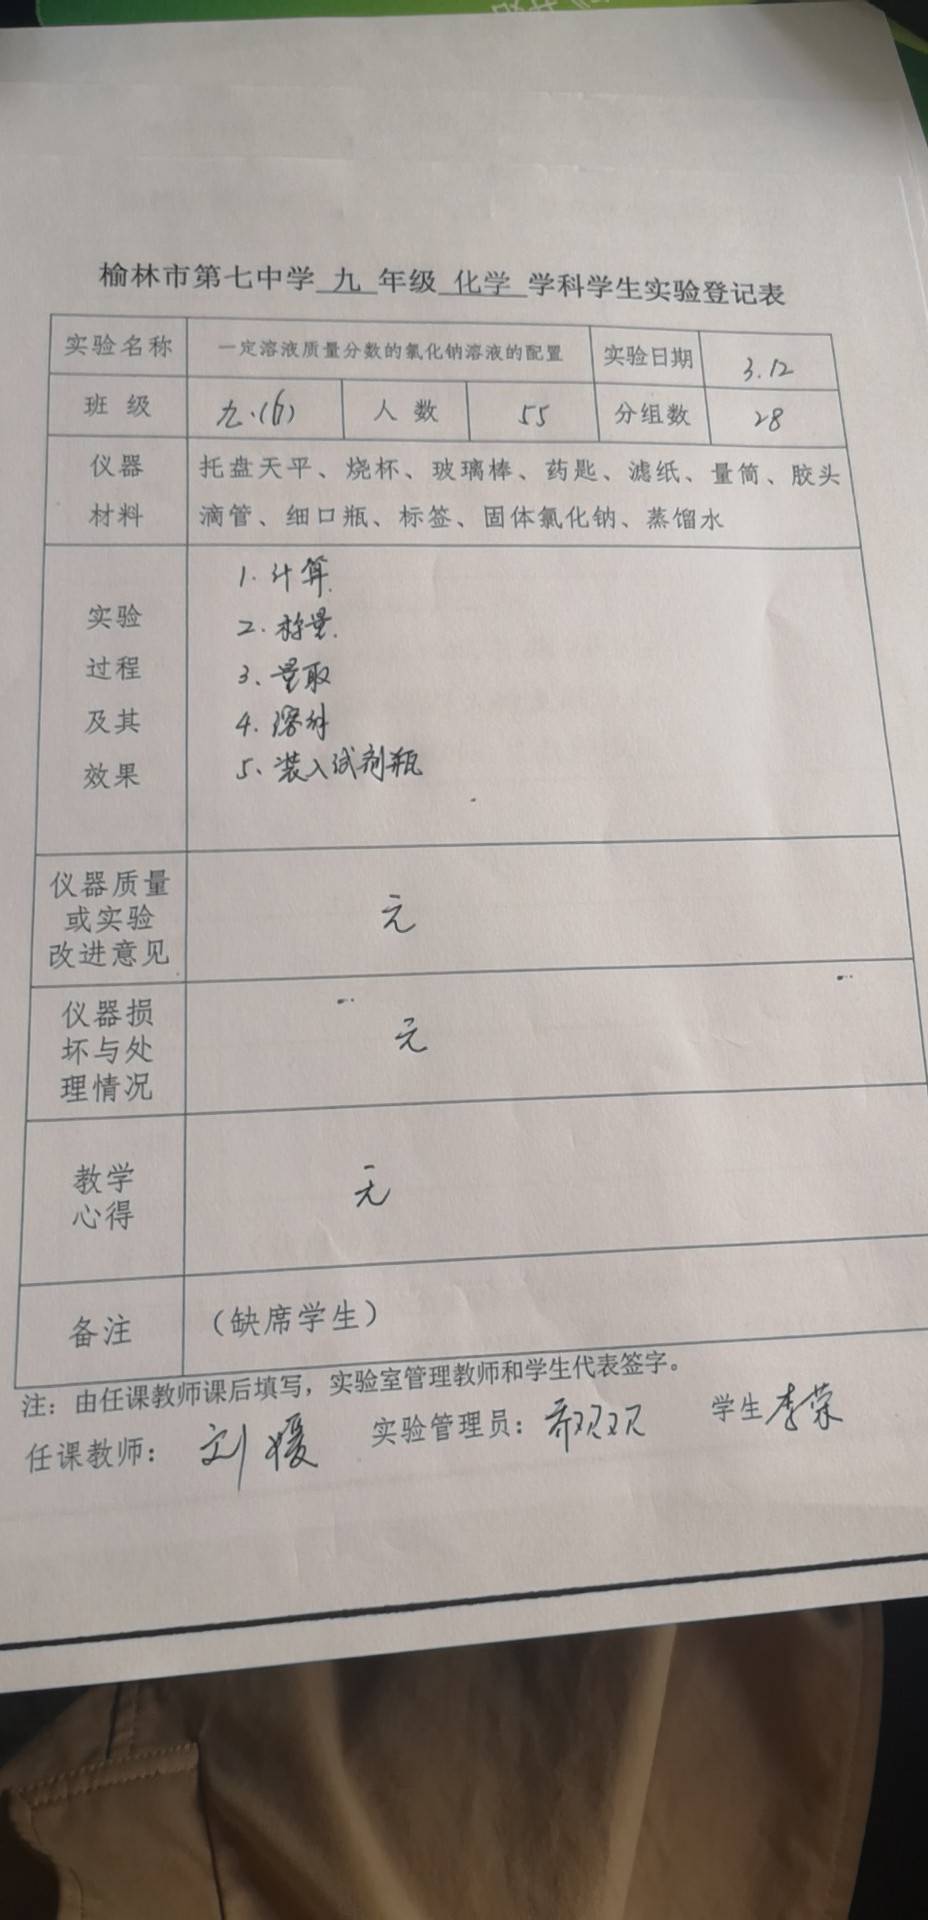 榆林市第七中学 九 年级 化学 学科学生实验登记表
实验名称 一定溶液质量分数的氯化钠溶液的配置 实验日期 3.12
班 级 九.(6) 人 数 55 分组数 28
仪器材料 托盘天平、烧杯、玻璃棒、药匙、滤纸、量筒、胶头
滴管、细口瓶、标签、固体氯化钠、蒸馏水
实验过程及其效果
1.计算
2.称量.
3、量取
4.溶解
5、装入试剂瓶
仪器质量或实验改进意见 无
仪器损坏与处理情况 无
教学心得 无
备注 (缺席学生)
注：由任课教师课后填写，实验室管理教师和学生代表签字。
任课教师：刘媛 实验管理员： 学生 李荣